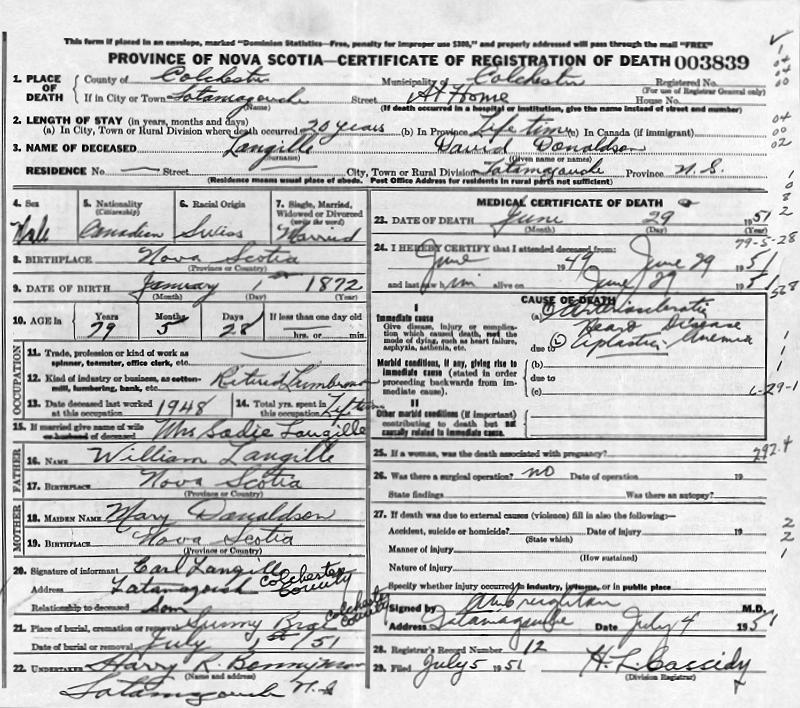 This form if placed in an envelope, marked "Dominion Statistics—Free, penalty for improper use $300," and properly addressed will pass through the mail "FREE"
PROVINCE OF NOVA SCOTIA—CERTIFICATE OF REGISTRATION OF DEATH 003839
1. PLACE OF DEATH
County of Colchester Municipality of Colchester Registered No.
(For use of Registrar General only)
If in City or Town Tatamagouche Street At Home House No.
(Name) (If death occurred in a hospital or institution, give the name instead of street and number)
2. LENGTH OF STAY (in years, months and days)
(a) In City, Town or Rural Division where death occurred 20 years (b) In Province Life time (c) In Canada (if immigrant)
3. NAME OF DECEASED Langille David Donaldson
(Surname) (Given name or names)
RESIDENCE No. — Street — City, Town or Rural Division Tatamagouche Province N.S.
(Residence means usual place of abode. Post Office Address for residents in rural parts not sufficient)
4. Sex Male
5. Nationality (Citizenship) Canadian
6. Racial Origin Swiss
7. Single, Married, Widowed or Divorced (write the word) Married
8. BIRTHPLACE Nova Scotia
(Province or Country)
9. DATE OF BIRTH January 1st 1872
(Month) (Day) (Year)
10. AGE IN Years 79 Months 5 Days 28 If less than one day old
hrs. or min.
OCCUPATION
11. Trade, profession or kind of work as spinner, teamster, office clerk, etc.
12. Kind of industry or business, as cotton-mill, lumbering, bank, etc. Retired Lumberman
13. Date deceased last worked at this occupation 1948
14. Total yrs. spent in this occupation Lifetime
15. If married give name of wife or husband of deceased Mrs Sadie Langille
FATHER
16. NAME William Langille
17. BIRTHPLACE Nova Scotia
(Province or Country)
MOTHER
18. MAIDEN NAME Mary Donaldson
19. BIRTHPLACE Nova Scotia
(Province or Country)
20. Signature of informant Carl Langille
Address Tatamagouche Colchester County
Relationship to deceased Son
21. Place of burial, cremation or removal Sunny Brae Colchester County
Date of burial or removal July 1st/51
22. UNDERTAKER Harry R.
(Name and address)
Tatamagouche N.S
MEDICAL CERTIFICATE OF DEATH
23. DATE OF DEATH June 29 1951
(Month) (Day) (Year)
79-5-28
24. I HEREBY CERTIFY that I attended deceased from:
June 1949 June 29 1951
and last saw him alive on June 29 1951
CAUSE OF DEATH
I
Immediate cause
Give disease, injury or complication which caused death, not the mode of dying, such as heart failure, asphyxia, asthenia, etc.
(a) Heart Disease
due to Aplastic Anemia
Morbid conditions, if any, giving rise to immediate cause (stated in order proceeding backwards from immediate cause).
(b)
due to
(c)
6-29-1
II
Other morbid conditions (if important) contributing to death but not causally related to immediate cause.
25. If a woman, was the death associated with pregnancy? 292.4
26. Was there a surgical operation? no Date of operation 19
State findings Was there an autopsy?
27. If death was due to external causes (violence) fill in also the following:—
Accident, suicide or homicide? Date of injury 19
(State which)
Manner of injury
(How sustained)
Nature of injury
Specify whether injury occurred in industry, in home, or in public place
Signed by Creighton M.D.
Address Tatamagouche Date July 4 1951
28. Registrar's Record Number 12
29. Filed July 5 1951 H. L. Cassidy
(Division Registrar)